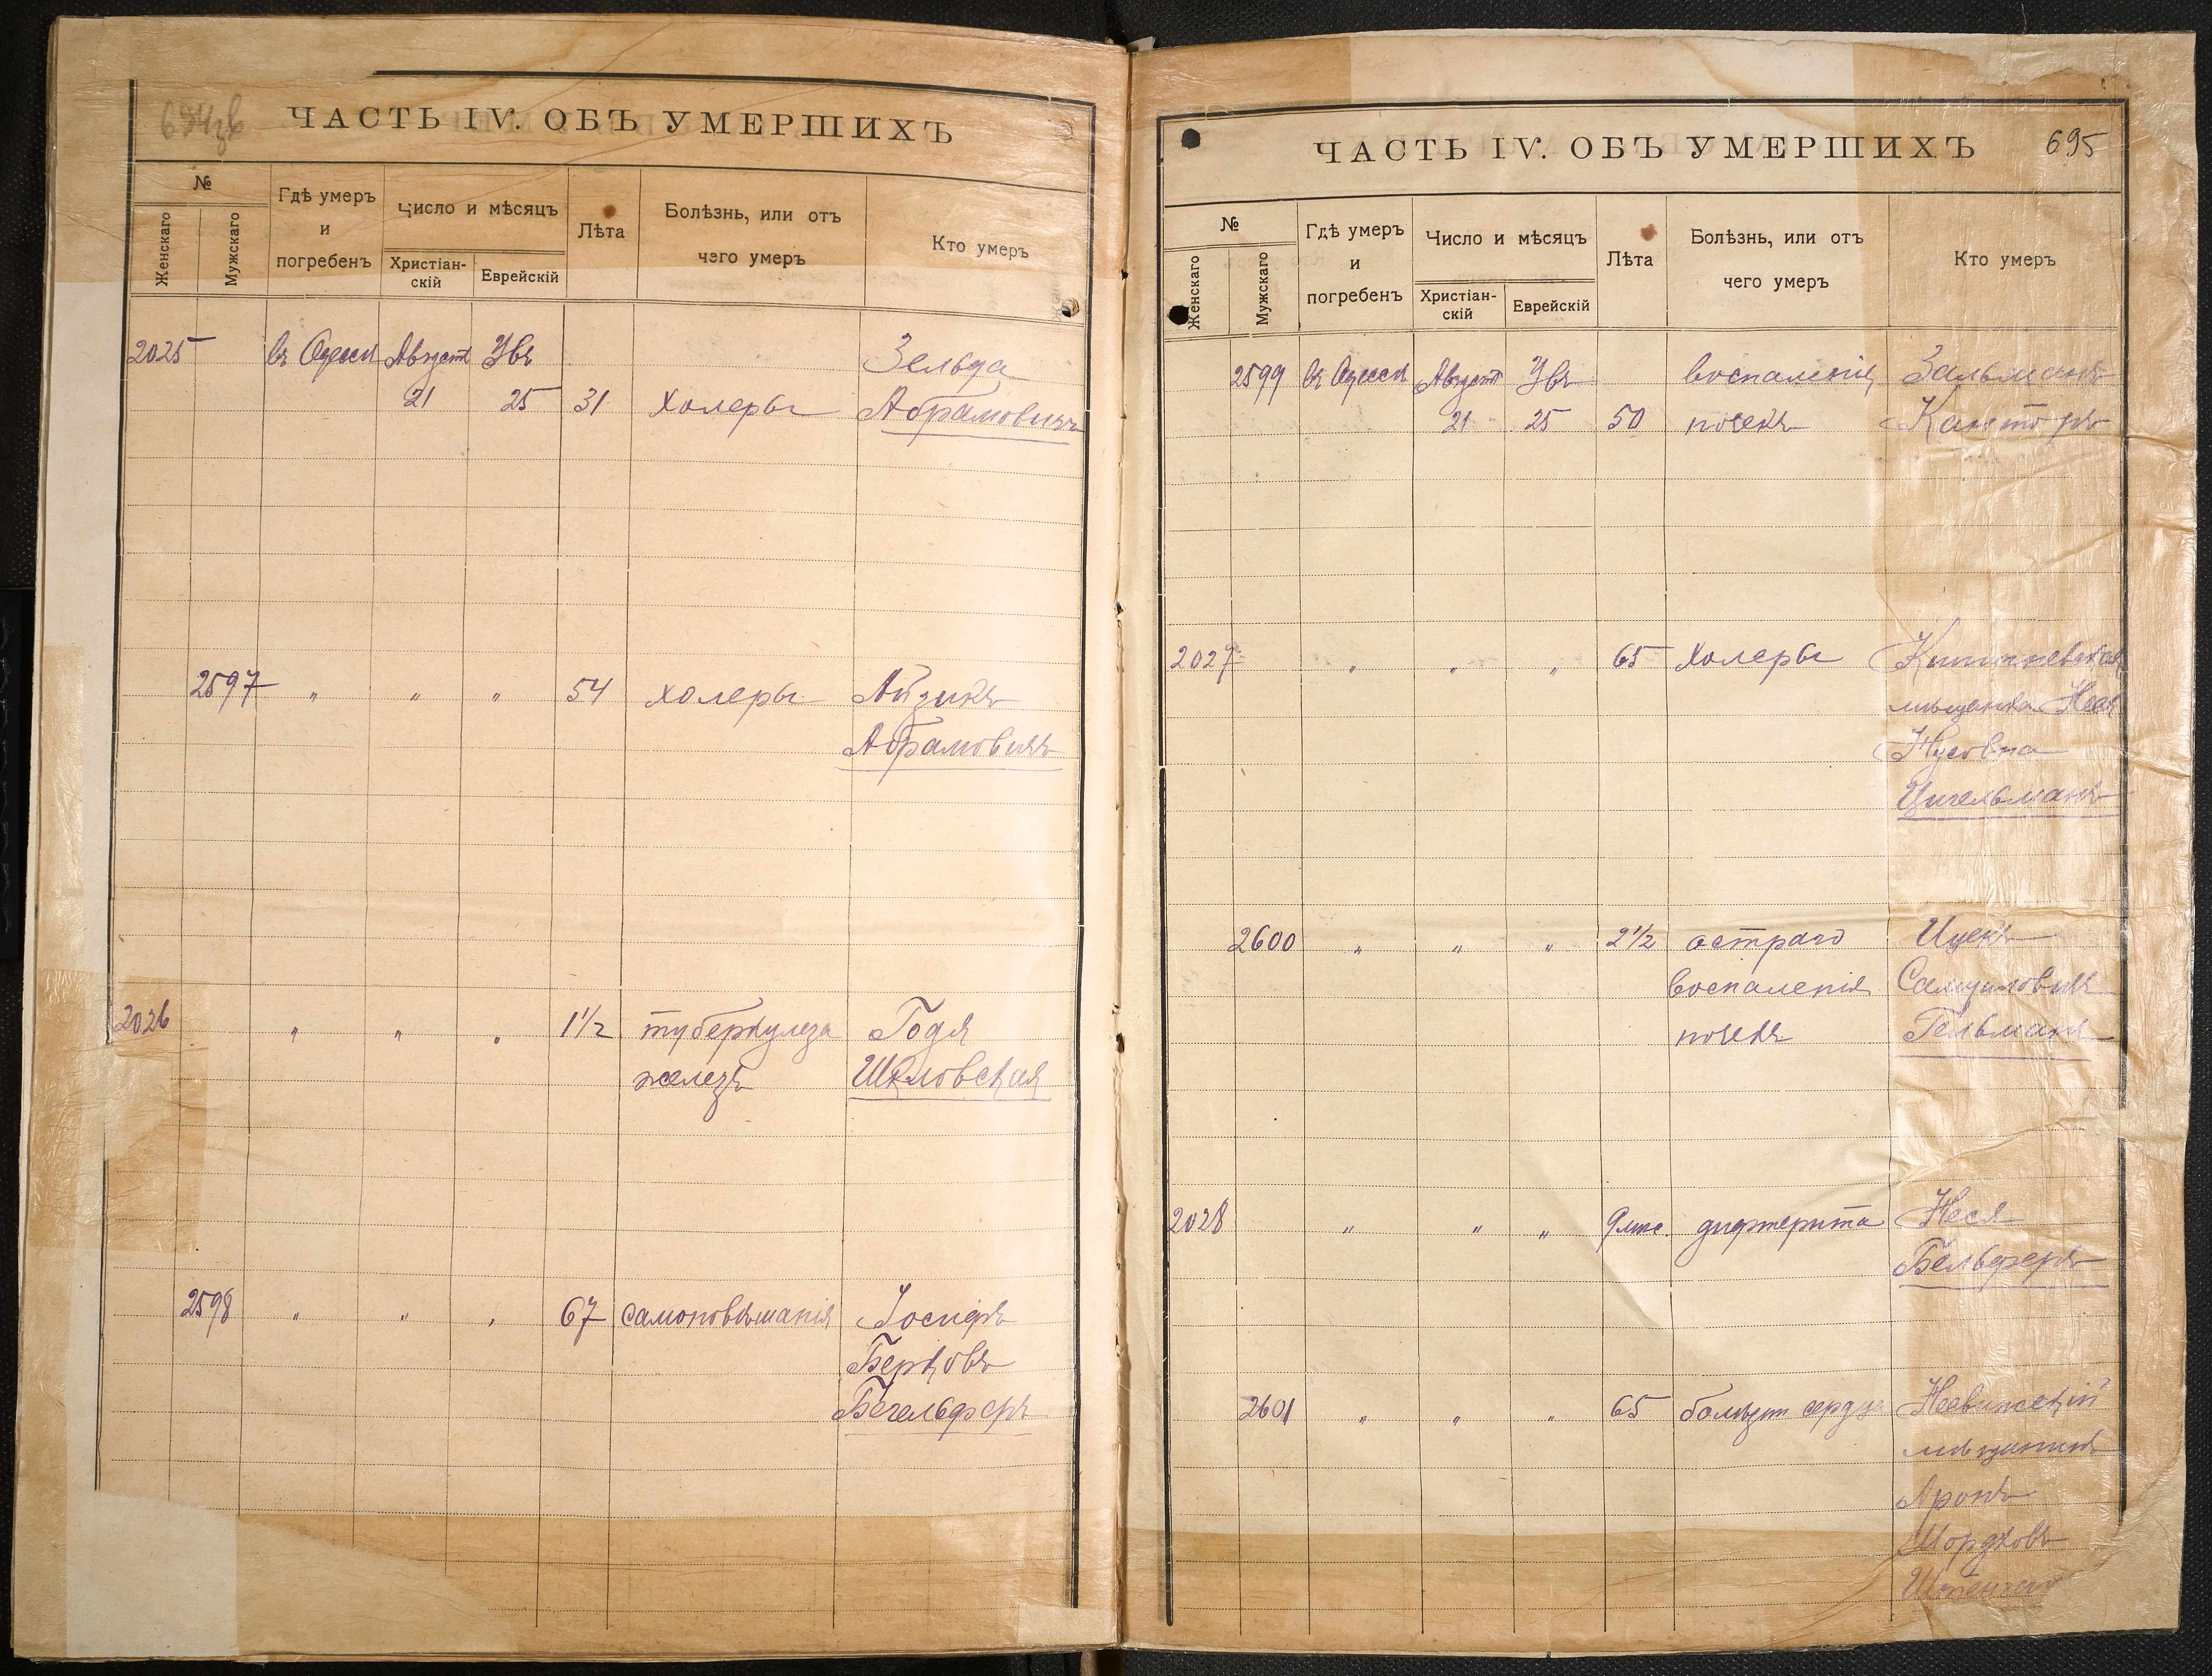 694 зв
ЧАСТЬ IV. ОБЪ УМЕРШИХЪ
№
Женскаго
Мужскаго
Гдѣ умеръ
и
погребенъ
Число и мѣсяцъ
Христіан-
скій
Еврейскій
Лѣта
Болѣзнь, или отъ
чего умеръ
Кто умеръ
2025 въ Одессѣ Августъ Увъ Зельда
21 25 31 Холеры Абрамовичъ
2597 " " " 54 холеры Айзикъ
Абрамовичъ
2026 " " " 1½ туберкулеза Годя
железъ Шкловская
2598 " " " 67 самоповѣшанія Іосифъ
Берковъ
Бегельферъ
ЧАСТЬ IV. ОБЪ УМЕРШИХЪ
695
№
Женскаго
Мужскаго
Гдѣ умеръ
и
погребенъ
Число и мѣсяцъ
Христіан-
скій
Еврейскій
Лѣта
Болѣзнь, или отъ
чего умеръ
Кто умеръ
2599 въ Одессѣ Августъ Увъ воспаленія Зальманъ
21 25 50 почекъ Канторъ
2027 " " " 65 Холеры Кишиневская
мѣщанка Нехя
Нусовна
Цигельманъ
2600 " " " 2½ остраго Ицекъ
воспаленія Самуиловичъ
почекъ Гельманъ
2028 " " " 9 мѣс. дифтерита Неся
Бельферъ
2601 " " " 65 болѣзни сердца
мѣщанинъ
Аронъ
Мордковъ